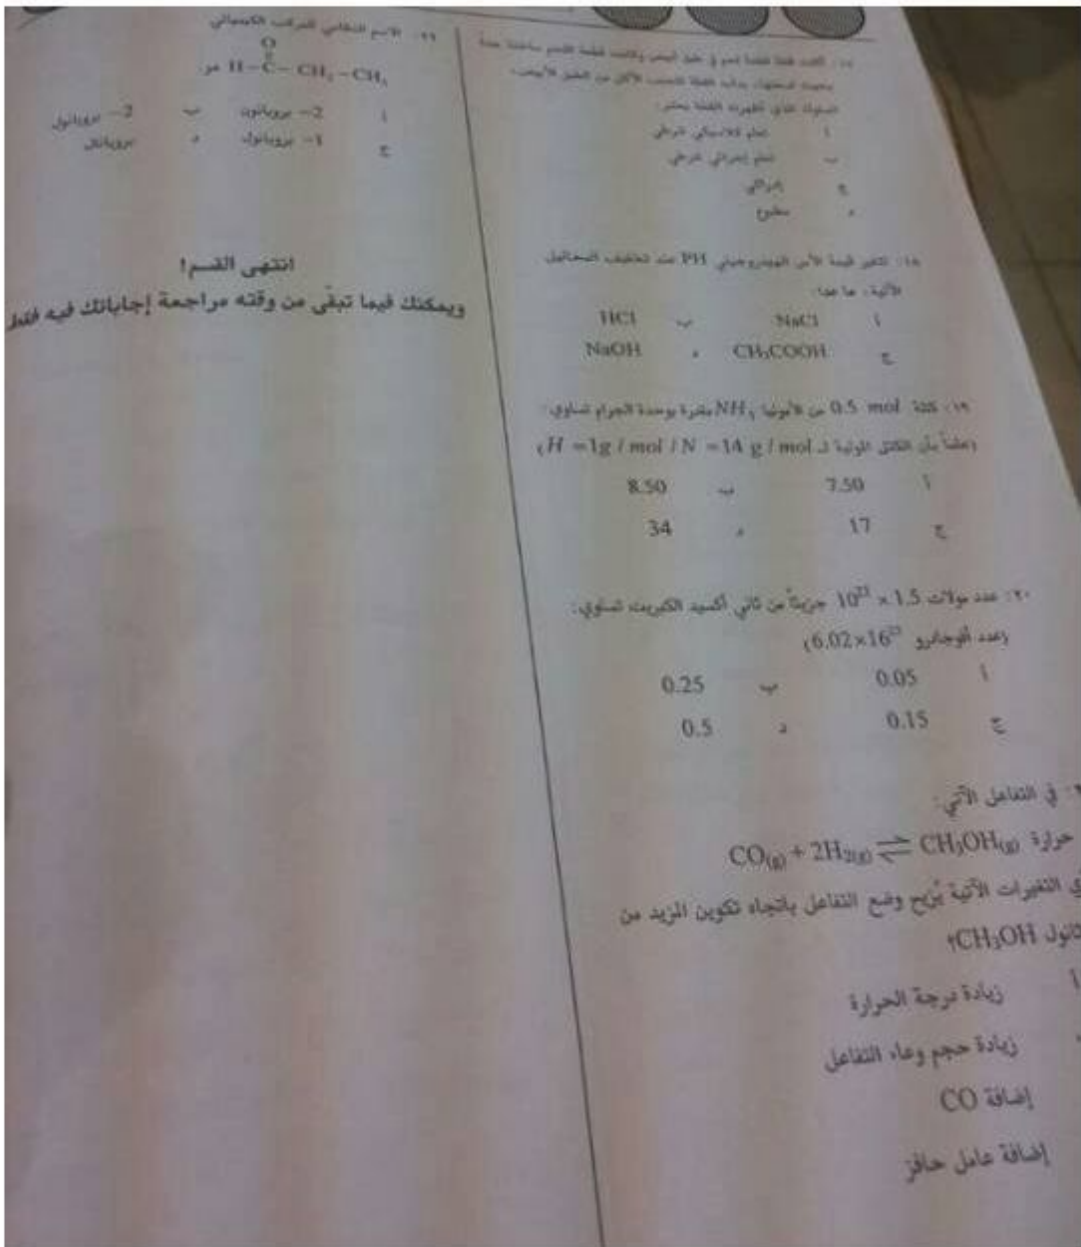 ١٧. أكلت قطة قطعة لحم في طبق أبيض وكانت قطعة اللحم ساخنة جداً
السلوك الذي أظهرته القطة يعتبر:
أ تعلم كلاسيكي شرطي
ب تعلم إجرائي شرطي
ج إدراكي
د مطبوع
١٨. تتغير قيمة الأس الهيدروجيني PH عند تخفيف المحاليل
الآتية، ما عدا:
أ NaCl ب HCl
ج CH₃COOH د NaOH
١٩. كتلة 0.5 mol من الأمونيا NH₃ مقدرة بوحدة الجرام تساوي:
(علماً بأن الكتل المولية لـ H =1g / mol / N =14 g / mol)
أ 7.50 ب 8.50
ج 17 د 34
٢٠: عدد مولات 1.5 × 10²³ جزيئاً من ثاني أكسيد الكبريت تساوي:
(عدد أفوجادرو 6.02×16²³)
أ 0.05 ب 0.25
ج 0.15 د 0.5
في التفاعل الآتي:
CO(g) + 2H2(g) ⇌ CH₃OH(g) حرارة
ي التغيرات الآتية يُزيح وضع التفاعل باتجاه تكوين المزيد من
ثانول CH₃OH؟
أ زيادة درجة الحرارة
زيادة حجم وعاء التفاعل
إضافة CO
إضافة عامل حافز
٢٢. الاسم النظامي للمركب الكيميائي
O
H – C – CH₂ – CH₃ هو:
أ 2– بروبانون ب 2– بروبانول
ج 1– بروبانول د بروبانال
انتهى القسم!
ويمكنك فيما تبقّى من وقته مراجعة إجاباتك فيه فقط